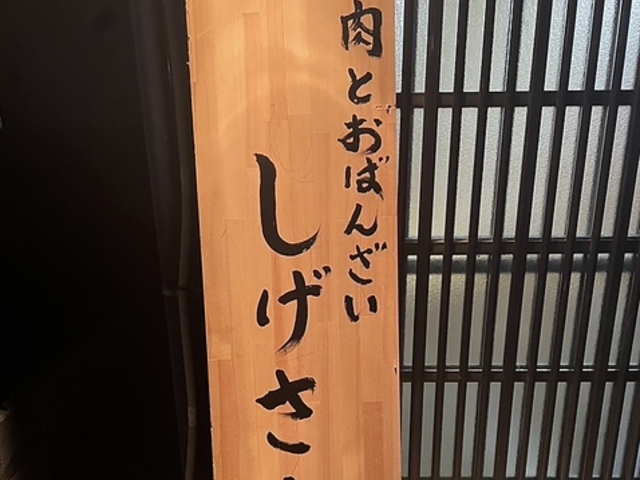 肉とおばんざい
しげさ